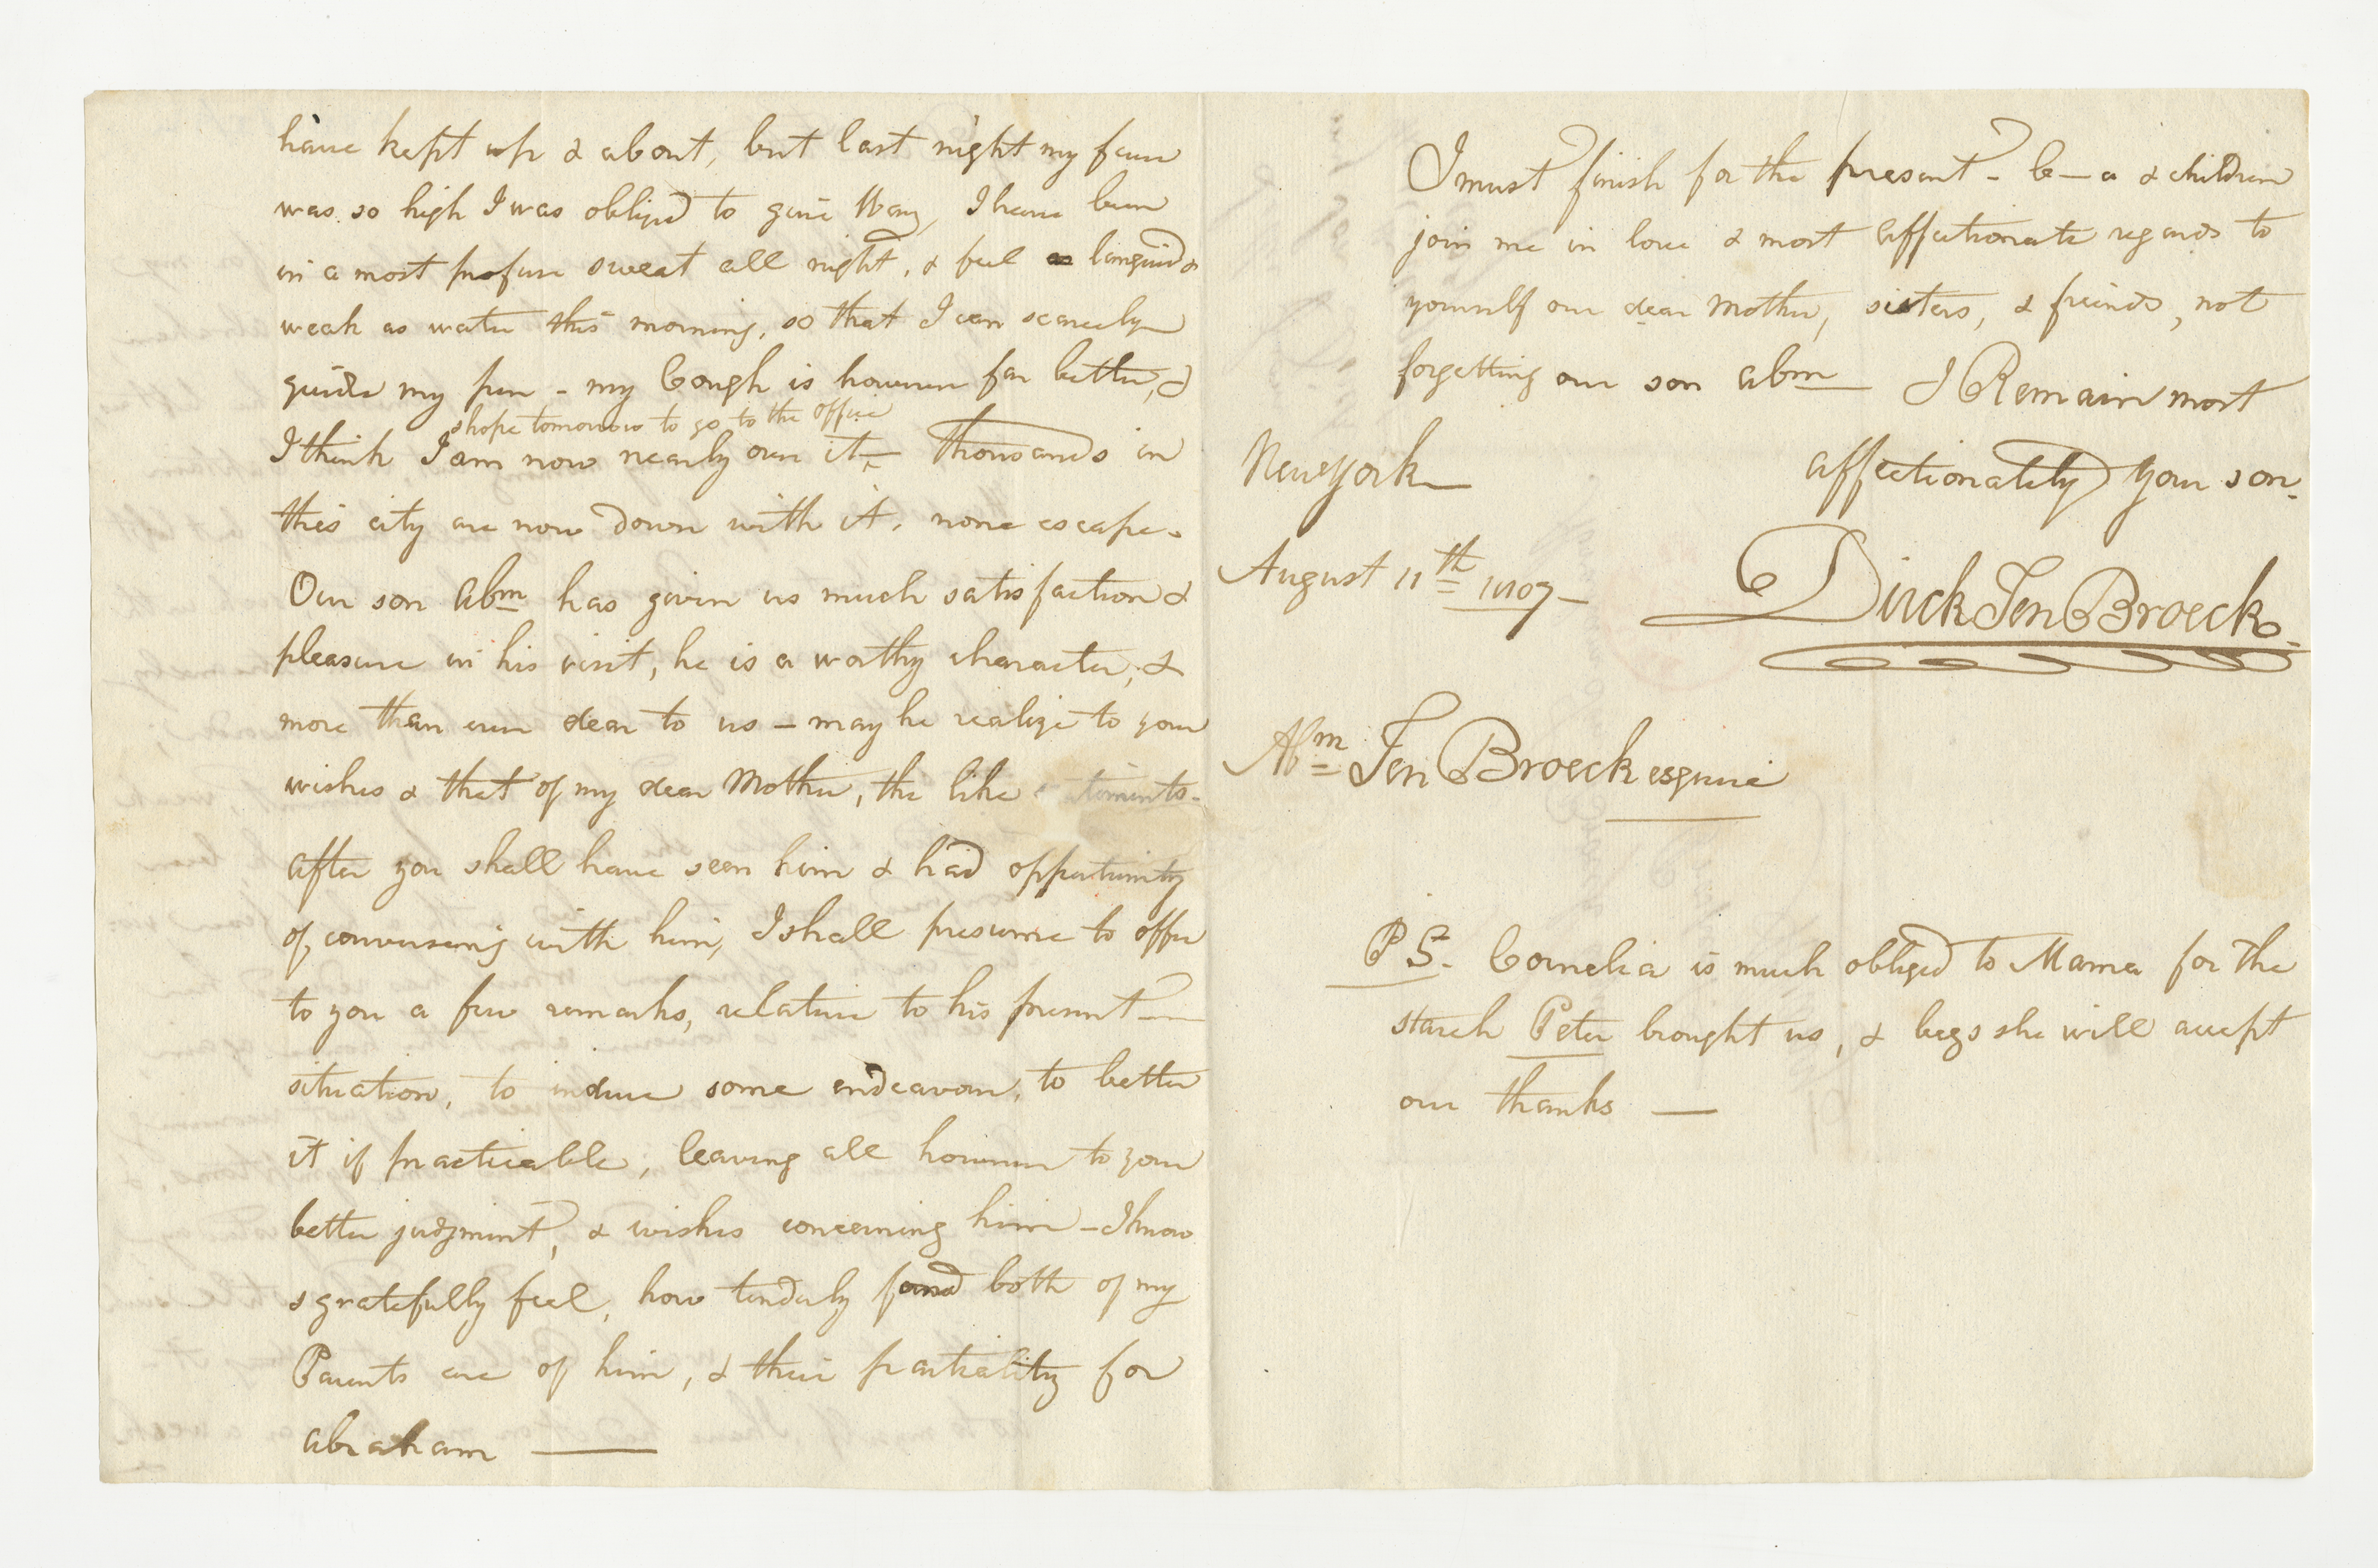 have kept up & about, but last night my fever
was so high I was obliged to give Way, I have been
in a most profuse sweat all night, & feel as languid &
weak as water this morning, so that I can scarcely
guide my pen - my Cough is however far better, &
& hope tomorrow to go to the office
I think I am now nearly over it - thousands in
this city are now down with it, none escape.
Our son Abm has given us much satisfaction &
pleasure in his visit, he is a worthy character, &
more than ever dear to us - may he realize to your
wishes & that of my dear Mother, the like
after you shall have seen him & had oppertunity
of conversing with him, I shall presume to offer
to you a few remarks, relative to his present
situation, to induce some endeavour, to better
it if practicable, leaving all however to your
better judgment, & wishes concerning him - I know
& gratefully feel, how tenderly fond both of my
Parents are of him, & their partiality for
Abraham —
I must finish for the present - C—a & children
join me in love & most affectionate regards to
yourself our dear Mother, sisters, & freinds, not
forgetting our son Abm I Remain most
affectionately your son.
New York
August 11th 1807 -
Dirck Ten Broeck.
Abm Ten Broeck esquire
P S. Cornelia is much obliged to Mama for the
starch Peter brought us, & begs she will accept
our thanks —